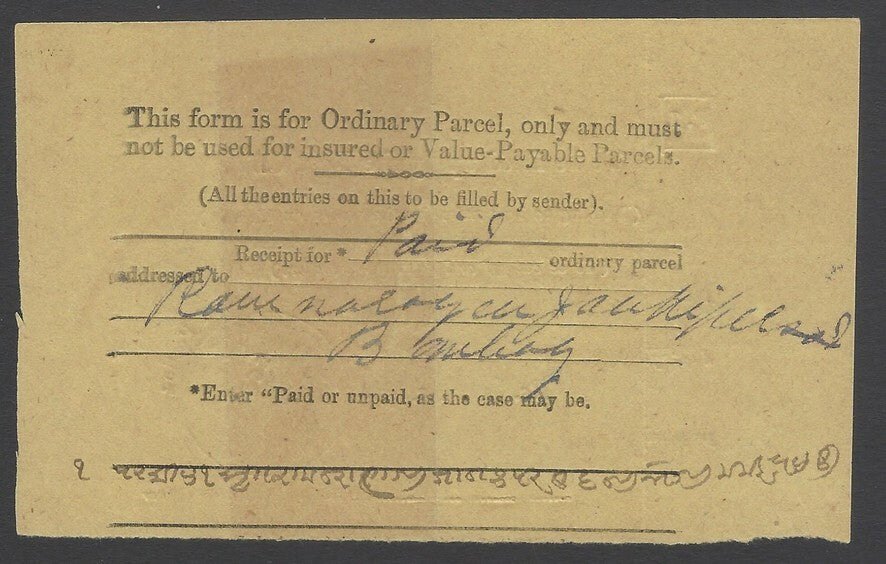 This form is for Ordinary Parcel, only and must
not be used for insured or Value-Payable Parcels.
(All the entries on this to be filled by sender).
Receipt for * Paid ordinary parcel
addressed to
Ramnarayen Jankipersad
Bombay
*Enter "Paid or unpaid, as the case may be.
१